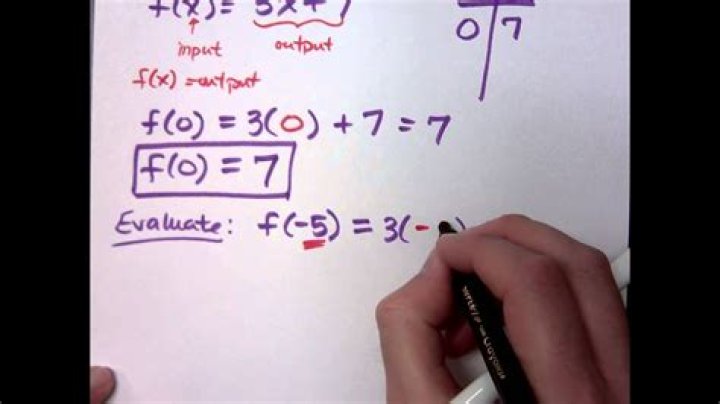 f(x) = 3x + 7
input output
0 7
f(x) = output
f(0) = 3(0) + 7 = 7
f(0) = 7
Evaluate: f(-5) = 3(-